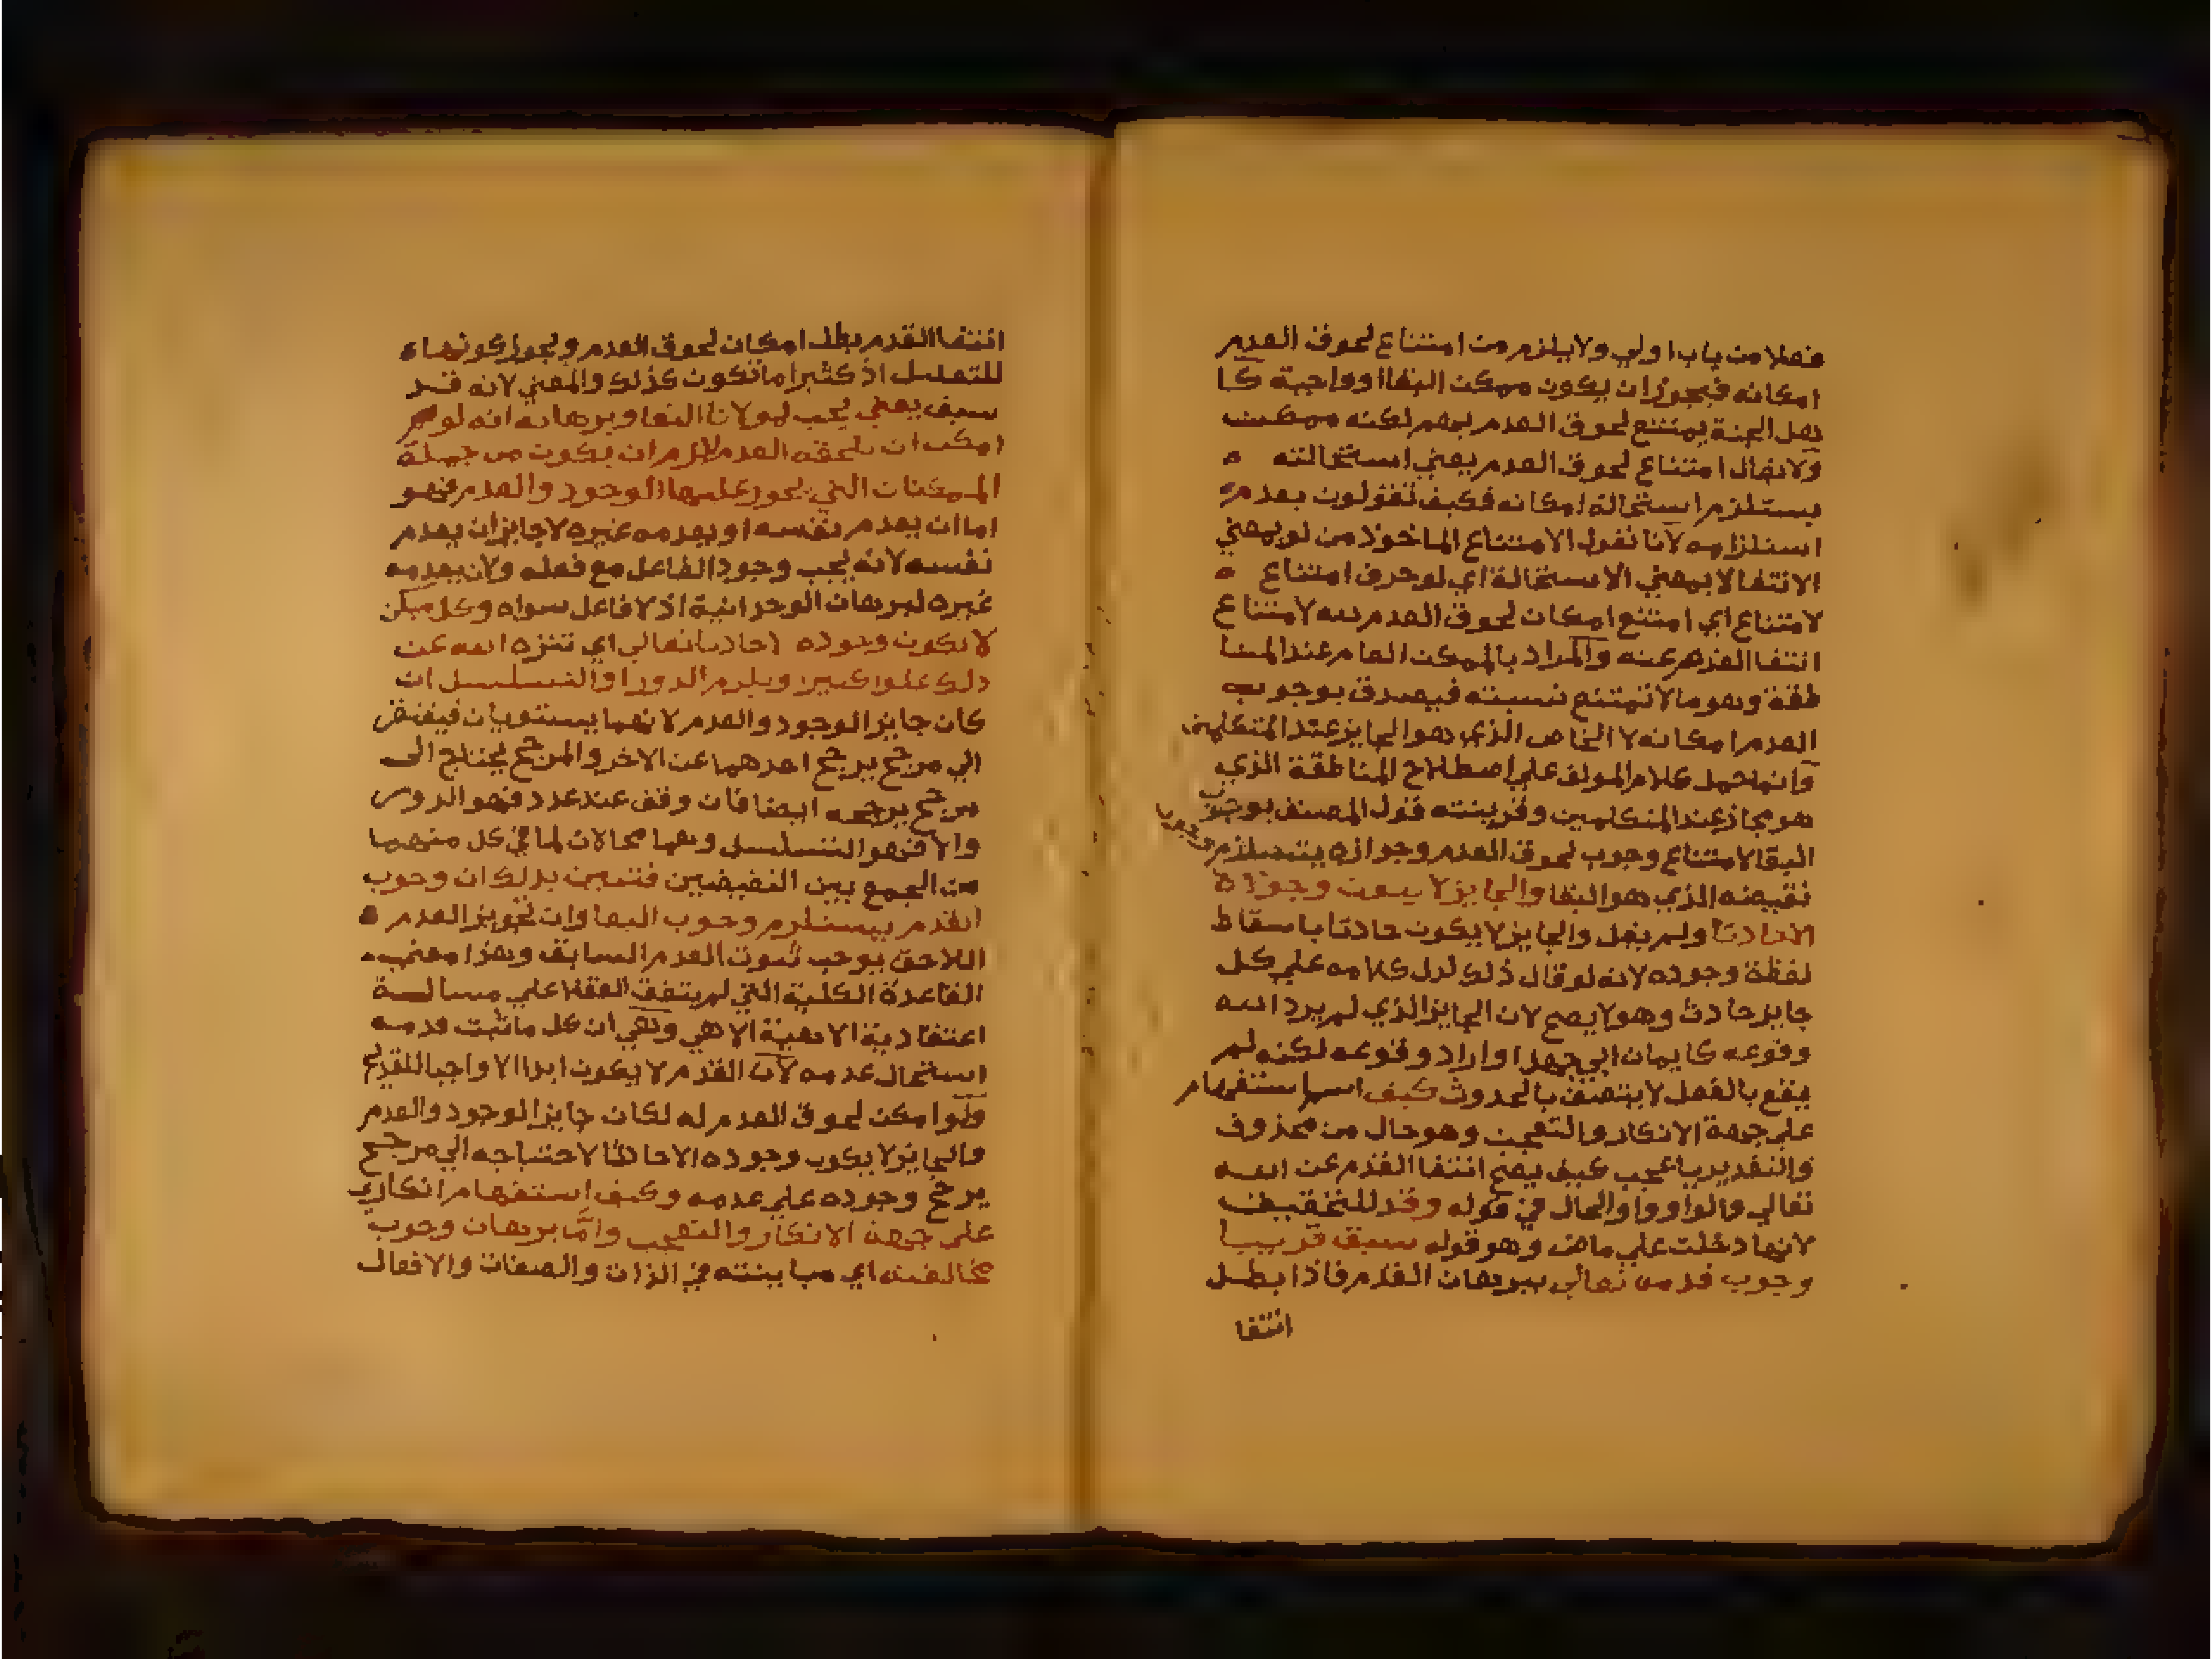 فضلا من باب اولي ولا يلزم من امتناع لحوق العدم
امكانه فيجوز ان يكون ممكن البقا او واجبه كا
هل الجنة يمتنع لحوق العدم بهم لكنه ممكن
ولا يقال امتناع لحوق العدم يعني استحالته
يستلزم استحالة امكانه فكيف تقولون بعدم
استلزامه لانا نقول الامتناع الماخوذ من لو بمعني
الانتفا لا بمعني الاستحالة اي لو حرف امتناع
لامتناع اي امتنع امكان لحوق العدم لله لامتناع
انتفا القدم عنه والمراد بالممكن العام عند المنا
طقة وهو ما لا تمتنع نسبته فيصدق بوجوب
العدم امكانه لا الخاص الذي هو الجايز عند المتكلمين
وانما حمل كلام المولف علي اصطلاح المناطقة الذي
هو مجاز عند المتكلمين وقرينته قول المصنف بوجوب
البقا لامتناع وجوب لحوق العدم وجوازه يستلزم
نقيضه الذي هو البقا والجايز لا يكون وجوده
الا حادثا ولم يقل والجايز لا يكون حادثا باسقاط
لفظة وجوده لانه لو قال ذلك لدل كلامه علي كل
جايز حادث وهو لا يصح لان الجايز الذي لم يرد الله
وقوعه كايمان ابي جهل او اراد وقوعه لكنه لم
يقع بالفعل لا يتصف بالحدوث كيف اسم استفهام
علي جهة الانكار والتعجب وهو حال من محذوف
والتقدير يا عجب كيف يصح انتفا القدم عن الله
تعالي والواو واو الحال في قوله وقد للتحقيق
لانها دخلت علي ماض وهو قوله سبق قريبا
وجوب قدمه تعالي ببرهان القدم فاذا بطل
انتفا
انتفا القدم بطل امكان لحوق العدم ويجوز كونها
للتعليل اذ كثيرا ما تكون كذلك والمعني لانه قد
سبق يعني يجب لمولانا البقا وبرهانه انه لو
امكن ان يلحقه العدم للزم ان يكون من جملة
الممكنات التي يجوز عليها الوجود والعدم فهو
اما ان يعدم نفسه او يعدمه غيره لا جايز ان يعدم
نفسه لانه يجب وجود الفاعل مع فعله ولا ان يعدمه
غيره لبرهان الوحدانية اذ لا فاعل سواه وكل ممكن
لا يكون وجوده الا حادثا تعالي اي تنزه الله عن
ذلك علوا كبيرا ويلزم الدور او التسلسل ان
كان جايز الوجود والعدم لانهما يستويان فيفتقر
الي مرجح يرجح احدهما عن الاخر والمرجح يحتاج الي
مرجح يرجحه ايضا فان وقف عند عدد فهو الدور
والا فهو التسلسل وهما محالان لما في كل منهما
من الجمع بين النقيضين فتبين بذلك ان وجوب
القدم يستلزم وجوب البقا وان تجويز العدم
اللاحق يوجب ثبوت العدم السابق وهذا معني
القاعدة الكلية التي لم يتفق العقلا علي مسالة
اعتقادية الاهية الا هي وهي ان كل ما ثبت قدمه
استحال عدمه لان القدم لا يكون ابدا الا واجبا للقديم
ولو امكن لحوق العدم له لكان جايز الوجود والعدم
والجايز لا يكون وجوده الا حادثا لاحتياجه الي مرجح
يرجح وجوده علي عدمه وكيف استفهام انكاري
علي جهة الانكار والتعجب واما برهان وجوب
مخالفته اي مباينته في الذات والصفات والافعال